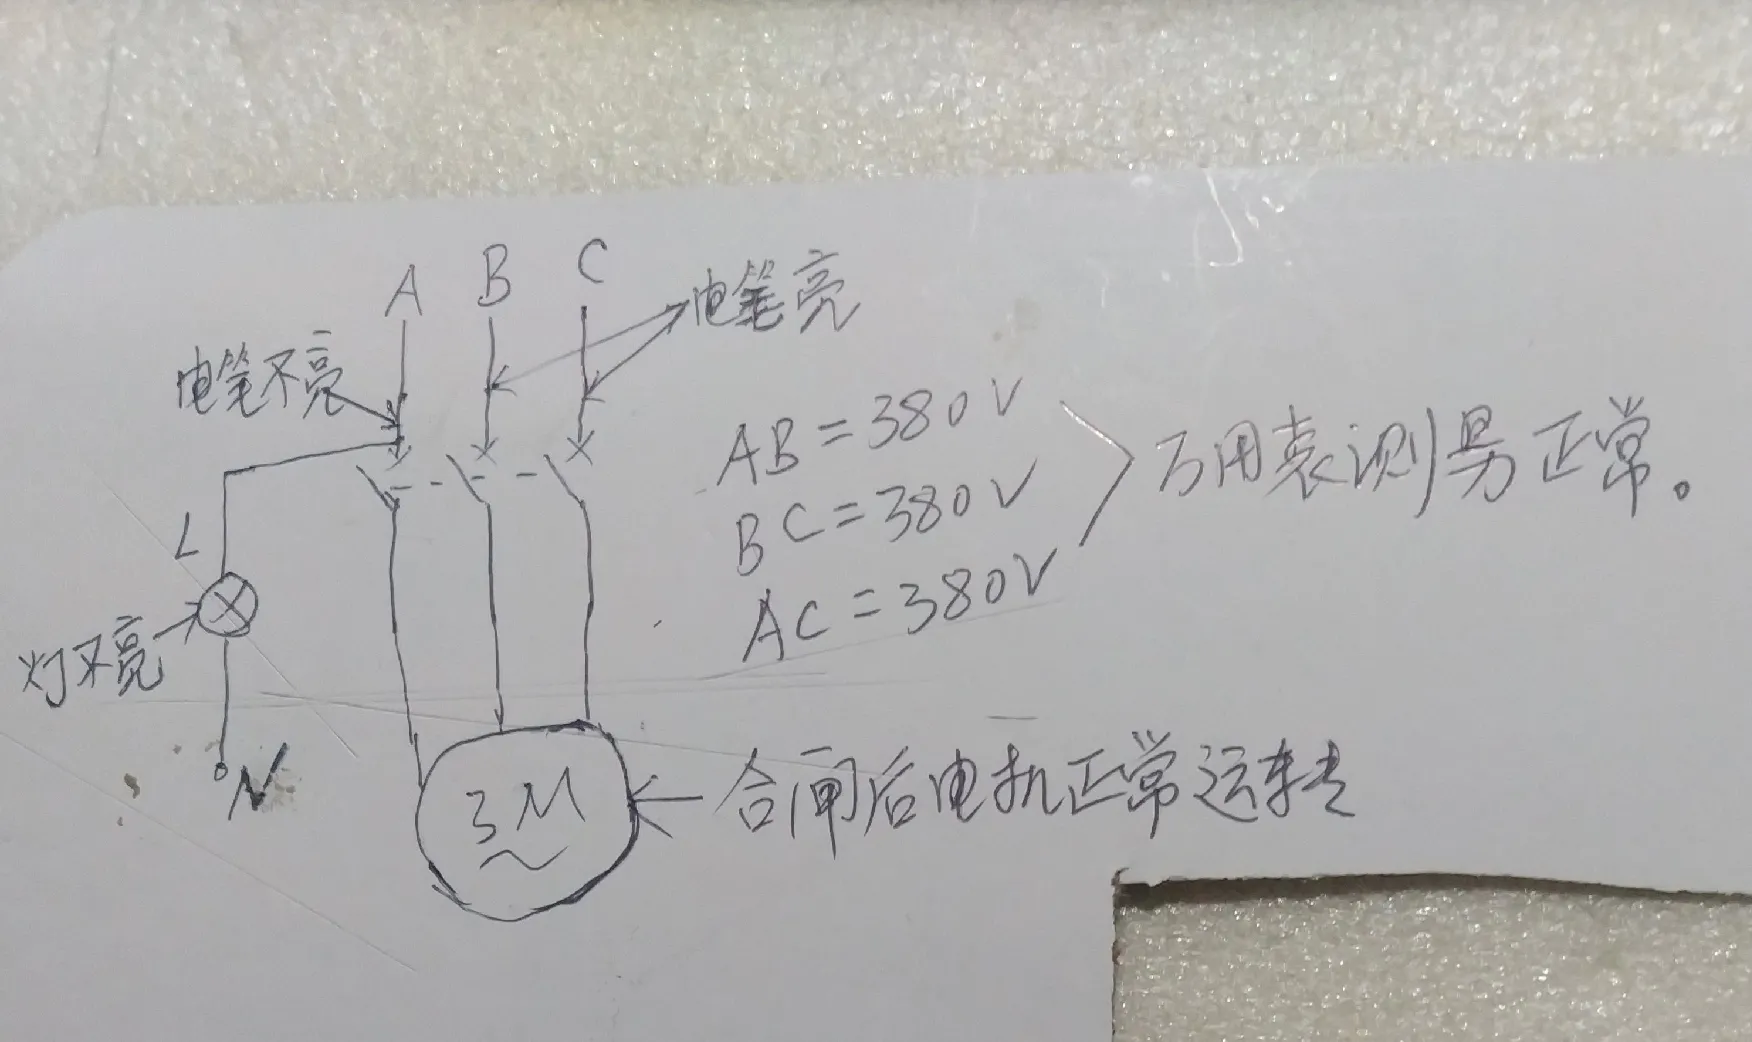 A B C
电笔亮
电笔不亮
AB=380V
BC=380V
AC=380V
万用表测量正常。
L
灯不亮
N
3M
~
合闸后电机正常运转